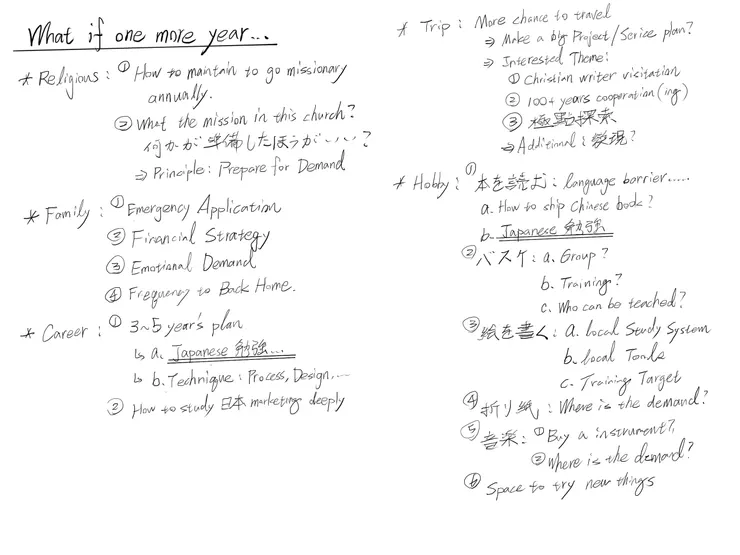 What if one more year...
* Religious : ① How to maintain to go missionary
annually.
② What the mission in this church?
何かが準備したほうがいい?
⇒ Principle: Prepare for Demand
* Family : ① Emergency Application
② Financial Strategy
③ Emotional Demand
④ Frequency to Back Home.
* Career : ① 3~5 year's plan
↳ a. Japanese 勉強...
↳ b. Technique : Process, Design,....
② How to study 日本 marketing deeply
* Trip : More chance to travel
⇒ Make a big Project/Serice plan?
⇒ Interested Theme:
① Christian writer visitation
② 100+ years cooperation(ing)
③ 極點探索
⇒ Additional : 發現?
* Hobby : ① 本を読む : language barrier.....
a. How to ship Chinese book?
b. Japanese 勉強
② バスケ : a. Group?
b. Training?
c. Who can be teached?
③ 絵を書く : a. local Study System
b. local Tools
c. Training Target
④ 折り紙 : Where is the demand?
⑤ 音楽 : ① Buy a instrument?
② Where is the demand?
⑥ Space to try new things